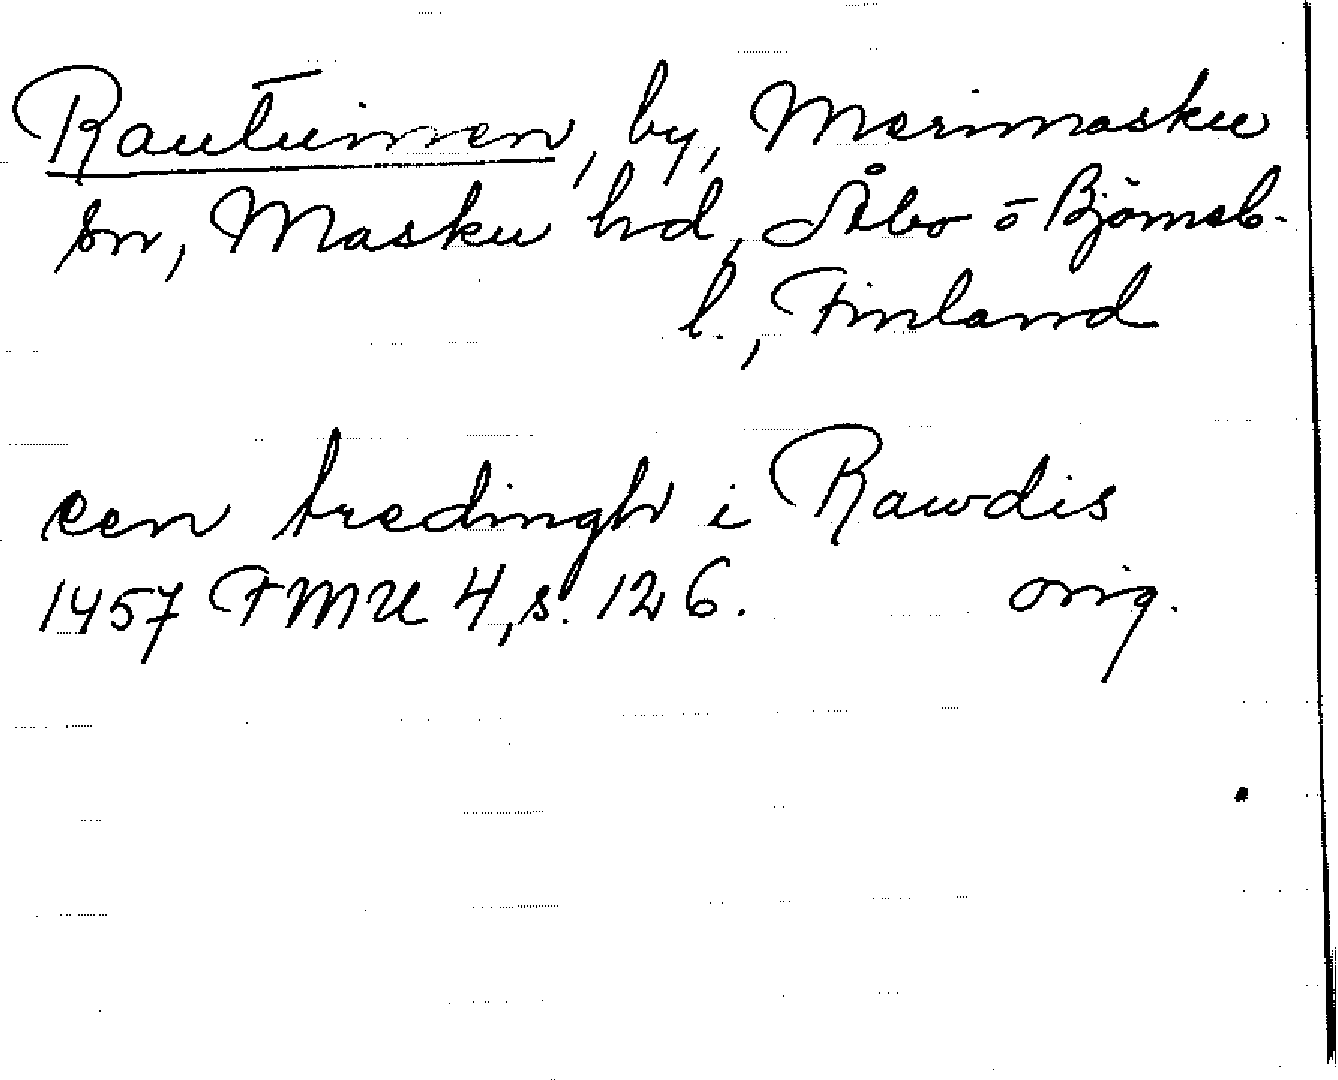 Rautuinen, by, Merimasku
sn, Masku hd, Åbo o Björneb.
l., Finland
een tredingh i Rawdis
1457 FMU 4, s. 126. orig.